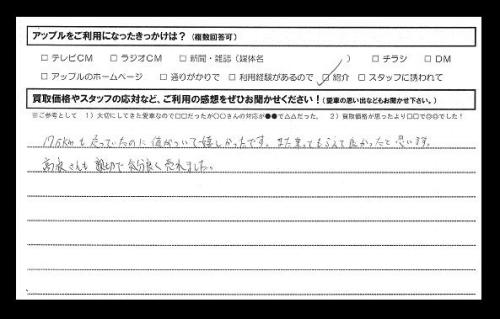 アップルをご利用になったきっかけは？（複数回答可）
□ テレビCM □ ラジオCM □ 新聞・雑誌（媒体名 ） □ チラシ □ DM
□ アップルのホームページ □ 通りがかりで □ 利用経験があるので □ 紹介 □ スタッフに誘われて
買取価格やスタッフの応対など、ご利用の感想をぜひお聞かせください！（愛車の思い出などもお聞かせ下さい。）
※ご参考として 1）大切にしてきた愛車なので□□だったが○○さんの対応が●●で△△だった。 2）買取価格が思ったより□□で◎◎でした！
走っていたのに値がついて嬉しかったです。また来てもらえて良かったと思います。
さんも親切で気分良く売れました。